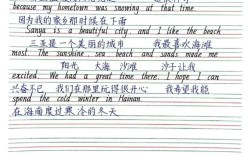 because my hometown was snowing at that time.
因为我的家乡那时候在下雪
Sanya is a beautiful city, and I like the beach
三亚是一个美丽的城市 我最喜欢海滩
most. The sunshine, sea, beach and sands made me
阳光 大海 沙滩 沙子让我
excited. We had a great time there. I hope I can
兴奋不已, 我们在那里玩得很开心 我希望我能
spend the cold winter in Hainan.
在海南度过寒冷的冬天